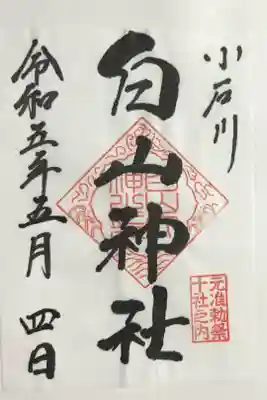 小石川
白山神社
元准勅祭
十社之内
令和五年五月 四日